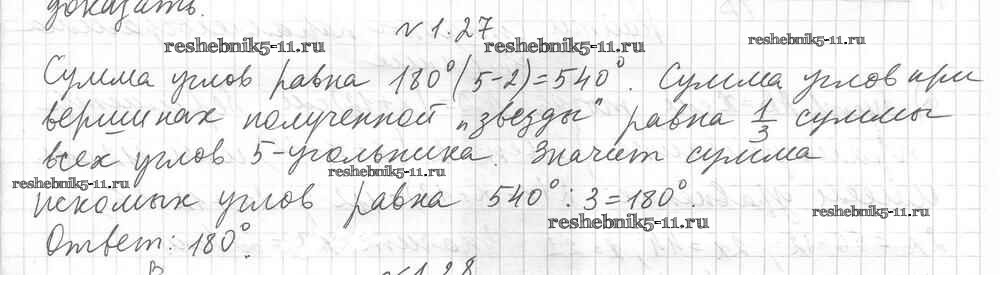 доказать.
№1.27.
reshebnik5-11.ru reshebnik5-11.ru reshebnik5-11.ru
Сумма углов равна 180°(5-2)=540°. Сумма углов при
вершинах полученной "звезды" равна 1/3 суммы
всех углов 5-угольника. Значит сумма
reshebnik5-11.ru reshebnik5-11.ru
искомых углов равна 540°:3=180°.
reshebnik5-11.ru reshebnik5-11.ru
Ответ: 180°.
№1.28